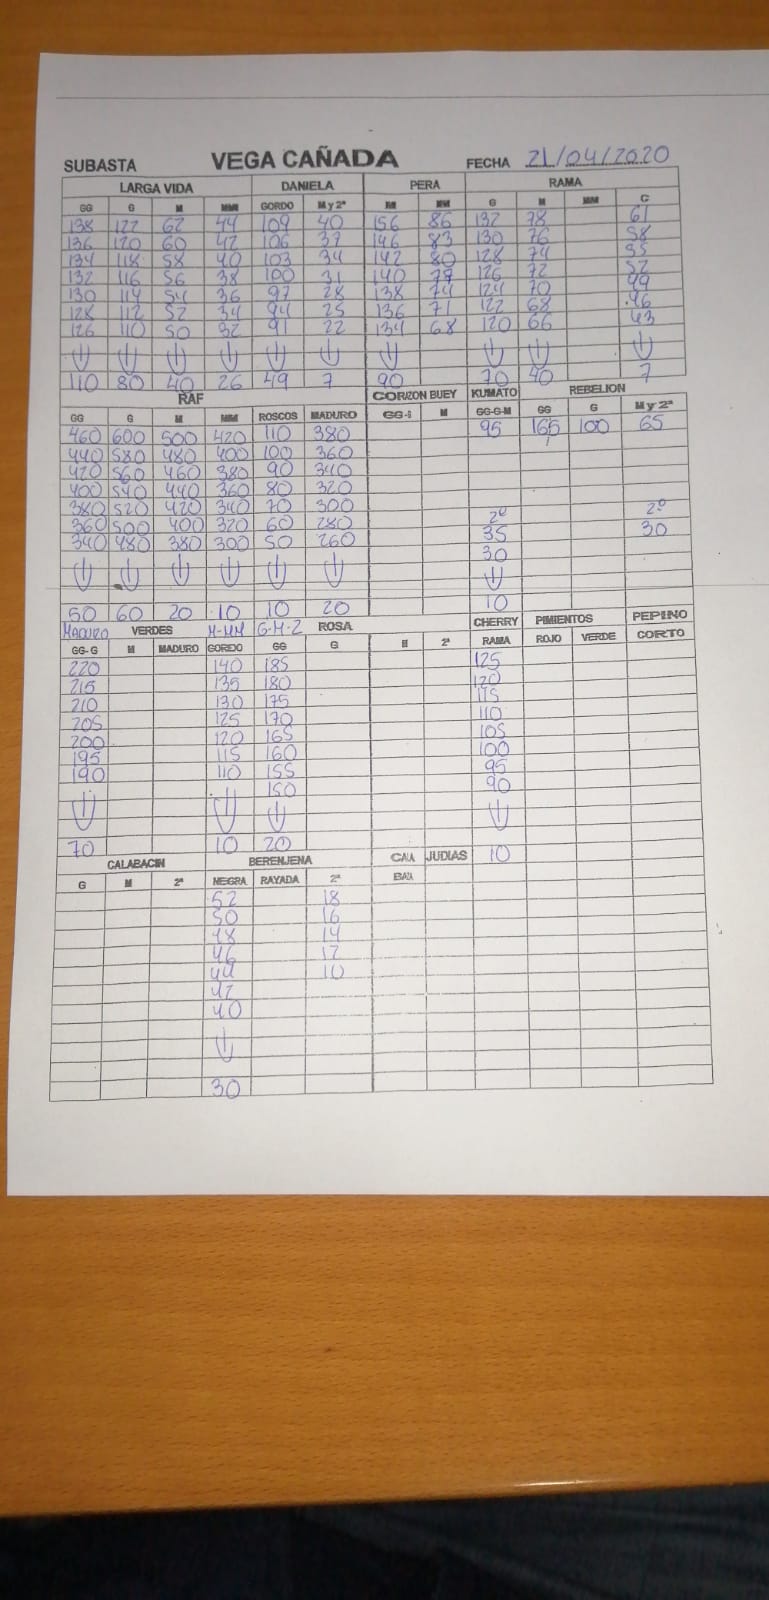 SUBASTA VEGA CAÑADA FECHA 21/04/2020
LARGA VIDA DANIELA PERA RAMA
GG G M MM GORDO M y 2ª M MM G M MM C
138 122 62 44 109 40 156 86 132 78 61
136 120 60 42 106 37 146 83 130 76 58
134 118 58 40 103 34 142 80 128 74 55
132 116 56 38 100 31 140 77 126 72 52
130 114 54 36 97 28 138 74 124 70 49
128 112 52 34 94 25 136 71 122 68 46
126 110 50 32 91 22 134 68 120 66 43
110 80 40 26 49 7 90 70 40 7
RAF CORAZON BUEY KUMATO REBELION
GG G M MM ROSCOS MADURO GG-G M GG-G-M GG G M y 2ª
460 600 500 420 110 380 95 165 100 65
440 580 480 400 100 360
420 560 460 380 90 340
400 540 440 360 80 320
380 520 420 340 70 300 2º 2º
360 500 400 320 60 280 35 30
340 480 380 300 50 260 30
50 60 20 10 10 20 10
MADURO VERDES M-MM G-M-2 ROSA CHERRY PIMIENTOS PEPINO
GG-G M MADURO GORDO GG G M 2ª RAMA ROJO VERDE CORTO
220 140 185 125
215 135 180 120
210 130 175 115
205 125 170 110
200 120 165 105
195 115 160 100
190 110 155 95
150 90
70 10 20
CALABACIN BERENJENA CAIA JUDIAS 10
G M 2ª NEGRA RAYADA 2ª BAJA
52 18
50 16
48 14
46 12
44 10
42
40
30